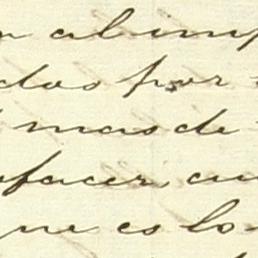 n al imp
dos por
mas de
facer, cu
ne es lo